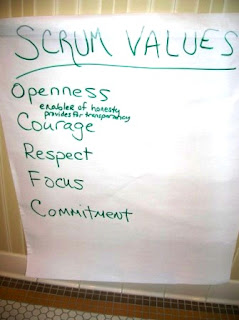 SCRUM VALUES
OPENNESS
enabler of honesty
provides for transparency
Courage
Respect
Focus
Commitment